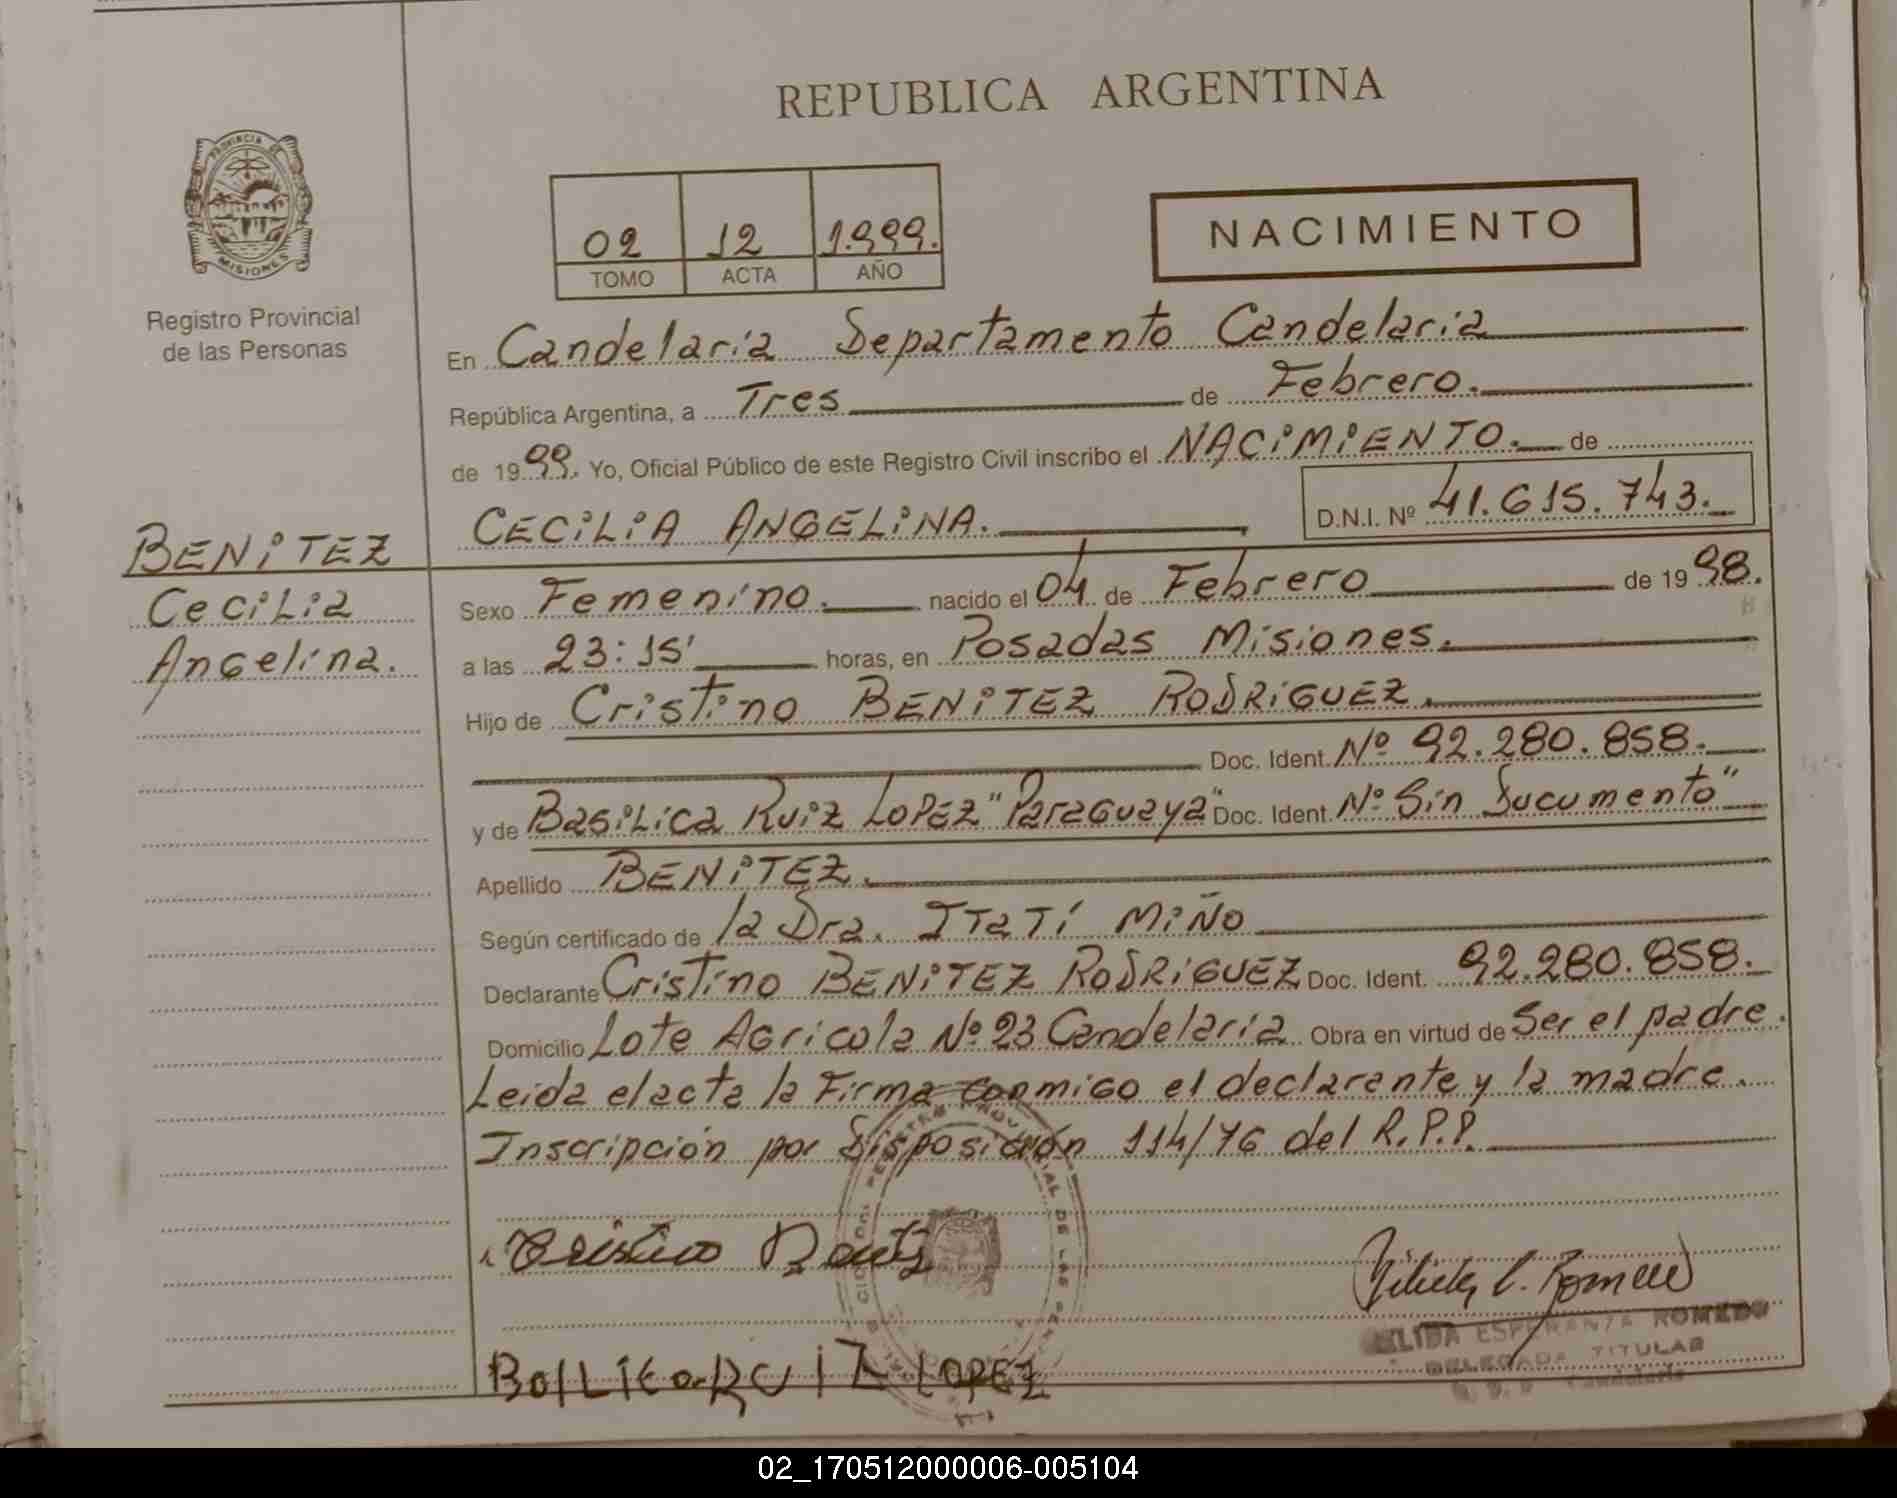 REPUBLICA ARGENTINA
PROVINCIA DE
MISIONES
Registro Provincial
de las Personas
02 12 1.999.
TOMO ACTA AÑO
NACIMIENTO
En Candelaria Departamento Candelaria
República Argentina, a Tres de Febrero.
de 1999. Yo, Oficial Público de este Registro Civil inscribo el NACIMIENTO. de
CECILIA ANGELINA. D.N.I. Nº 41.615.743.
BENITEZ
Cecilia
Angelina.
Sexo Femenino. nacido el 04 de Febrero de 1998.
a las 23:15' horas, en Posadas Misiones.
Hijo de Cristino BENITEZ RODRIGUEZ.
Doc. Ident. Nº 92.280.858.
y de Basilica Ruiz LOPEZ "Paraguaya" Doc. Ident. Nº Sin Ducumento"
Apellido BENITEZ.
Según certificado de la Dra. ITATÍ MIÑO
Declarante Cristino BENITEZ RODRIGUEZ Doc. Ident. 92.280.858.
Domicilio Lote Agricola Nº 23 Candelaria Obra en virtud de Ser el padre.
Leida el acta la Firma conmigo el declarante y la madre.
Inscripción por Disposición 114/76 del R.P.P.
Cristino
RUIZ LOPEZ
ESPERANZA ROMERO
DELEGADA TITULAR
Candelaria
02_170512000006-005104